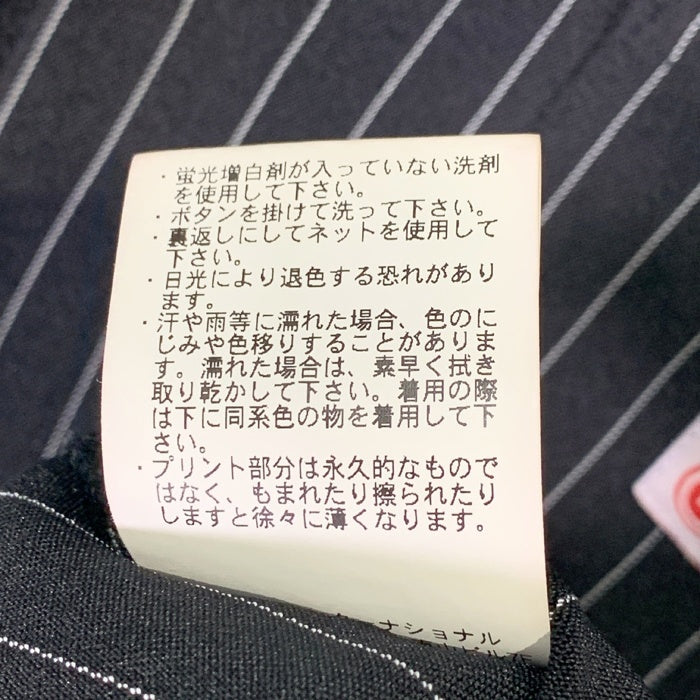 ・蛍光増白剤が入っていない洗剤
を使用して下さい。
・ボタンを掛けて洗って下さい。
・裏返しにしてネットを使用して
下さい。
・日光により退色する恐れがあり
ます。
・汗や雨等に濡れた場合、色のに
じみや色移りすることがありま
す。濡れた場合は、素早く拭き
取り乾かして下さい。着用の際
は下に同系色の物を着用して下
さい。
・プリント部分は永久的なもので
はなく、もまれたり擦られたり
しますと徐々に薄くなります。
ナショナル